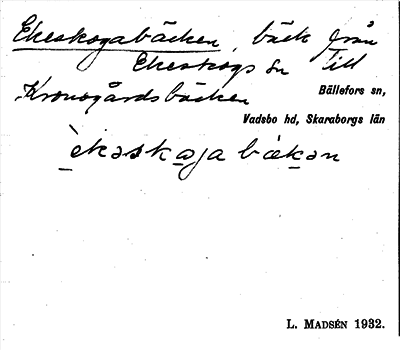 Ekeskogabäcken, bäck från
Ekeskogs sn till
Kronogårdsbäcken
Bällefors sn,
Vadsbo hd, Skaraborgs län
èkəskaga bækən
L. MADSÉN 1932.